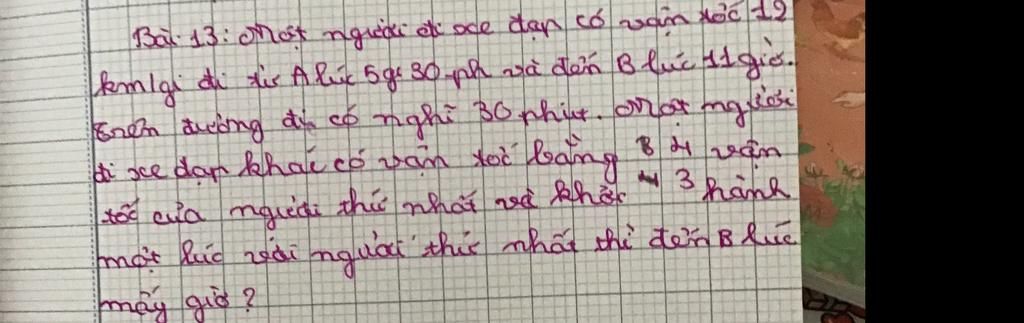 Bài 13: Một người đi xe đạp có vận tốc 12
km/gi đi từ A lúc 5g 30 ph và đến B lúc 11 giờ.
Trên đường đi có nghĩ 30 phút. Một người
đi xe đạp khác có vận tốc bằng 4 vận
tốc của người thứ nhất và khởi 3 hành
một lúc với người thứ nhất thì đến B lúc
mấy giờ?